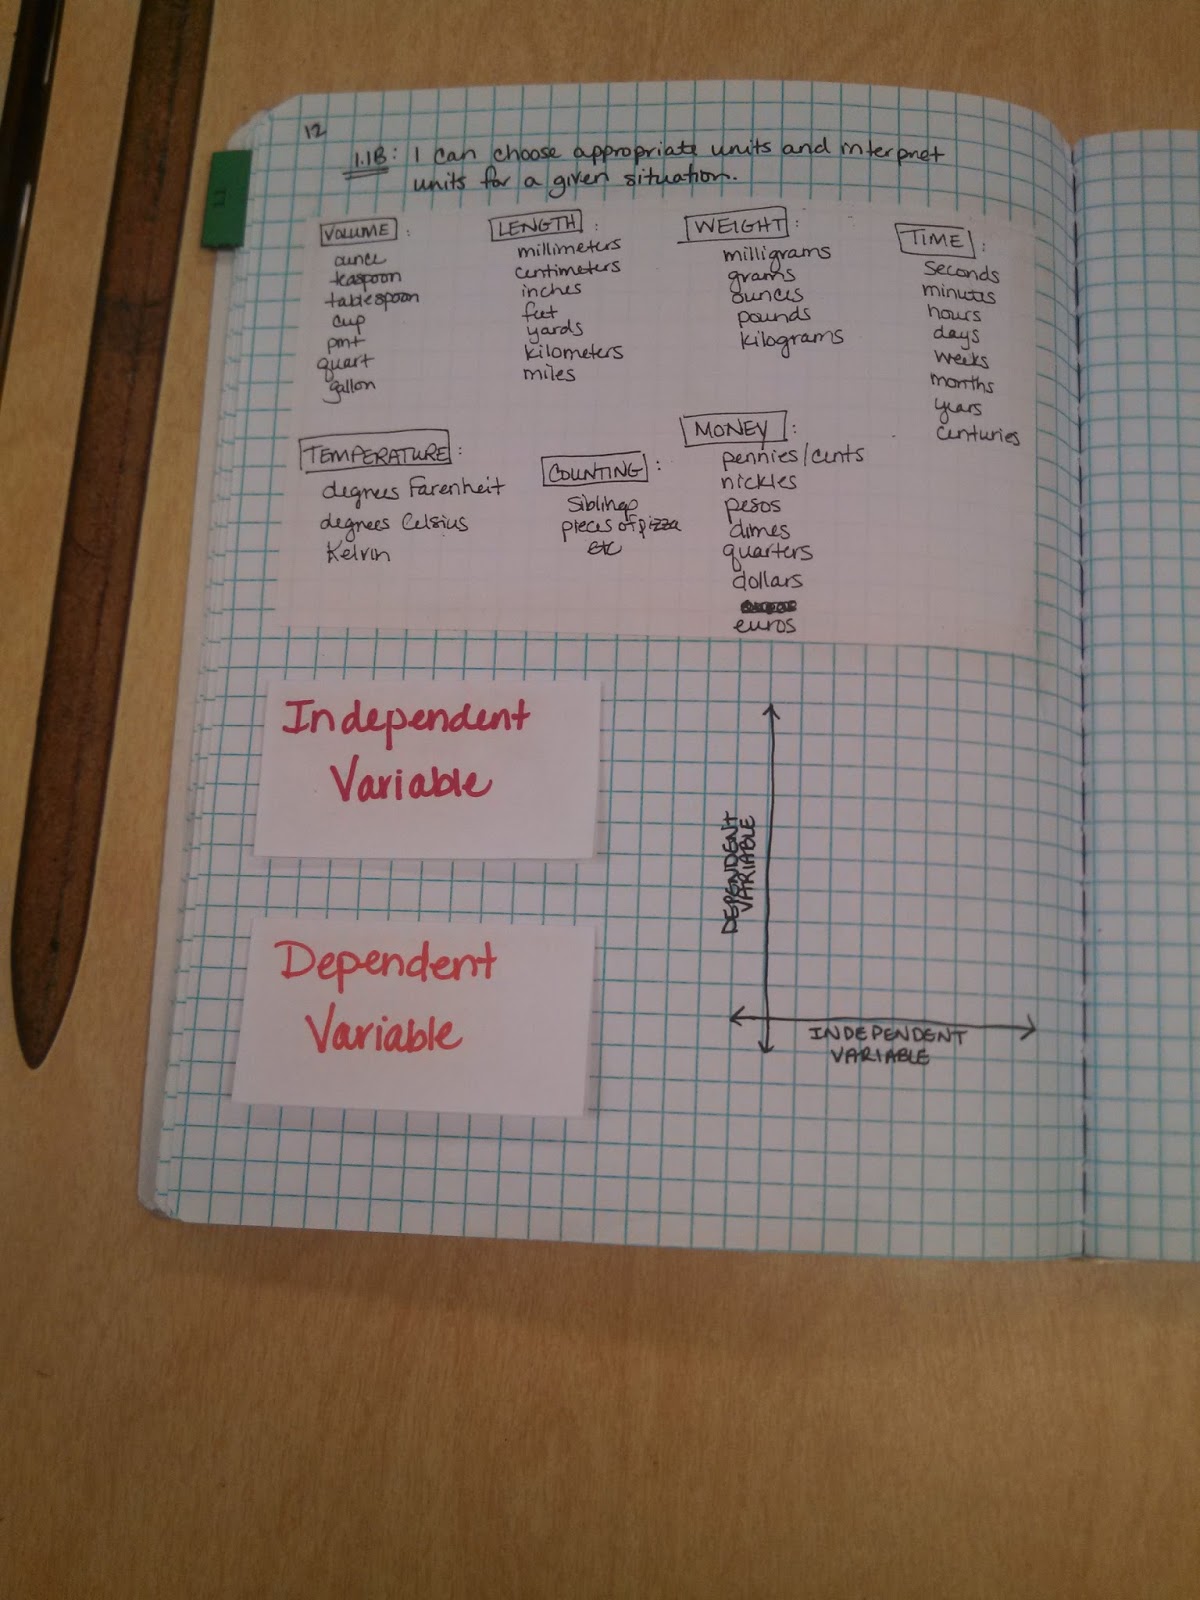 12
1.1B: I can choose appropriate units and interpret
units for a given situation.
VOLUME:
ounce
teaspoon
tablespoon
cup
pint
quart
gallon
LENGTH:
millimeters
centimeters
inches
feet
yards
kilometers
miles
WEIGHT:
milligrams
grams
ounces
pounds
kilograms
TIME:
seconds
minutes
hours
days
weeks
months
years
centuries
TEMPERATURE:
degrees Farenheit
degrees Celsius
Kelvin
COUNTING:
siblings
pieces of pizza
etc
MONEY:
pennies/cents
nickles
pesos
dimes
quarters
dollars
euros
Independent
Variable
Dependent
Variable
DEPENDENT
VARIABLE
INDEPENDENT
VARIABLE